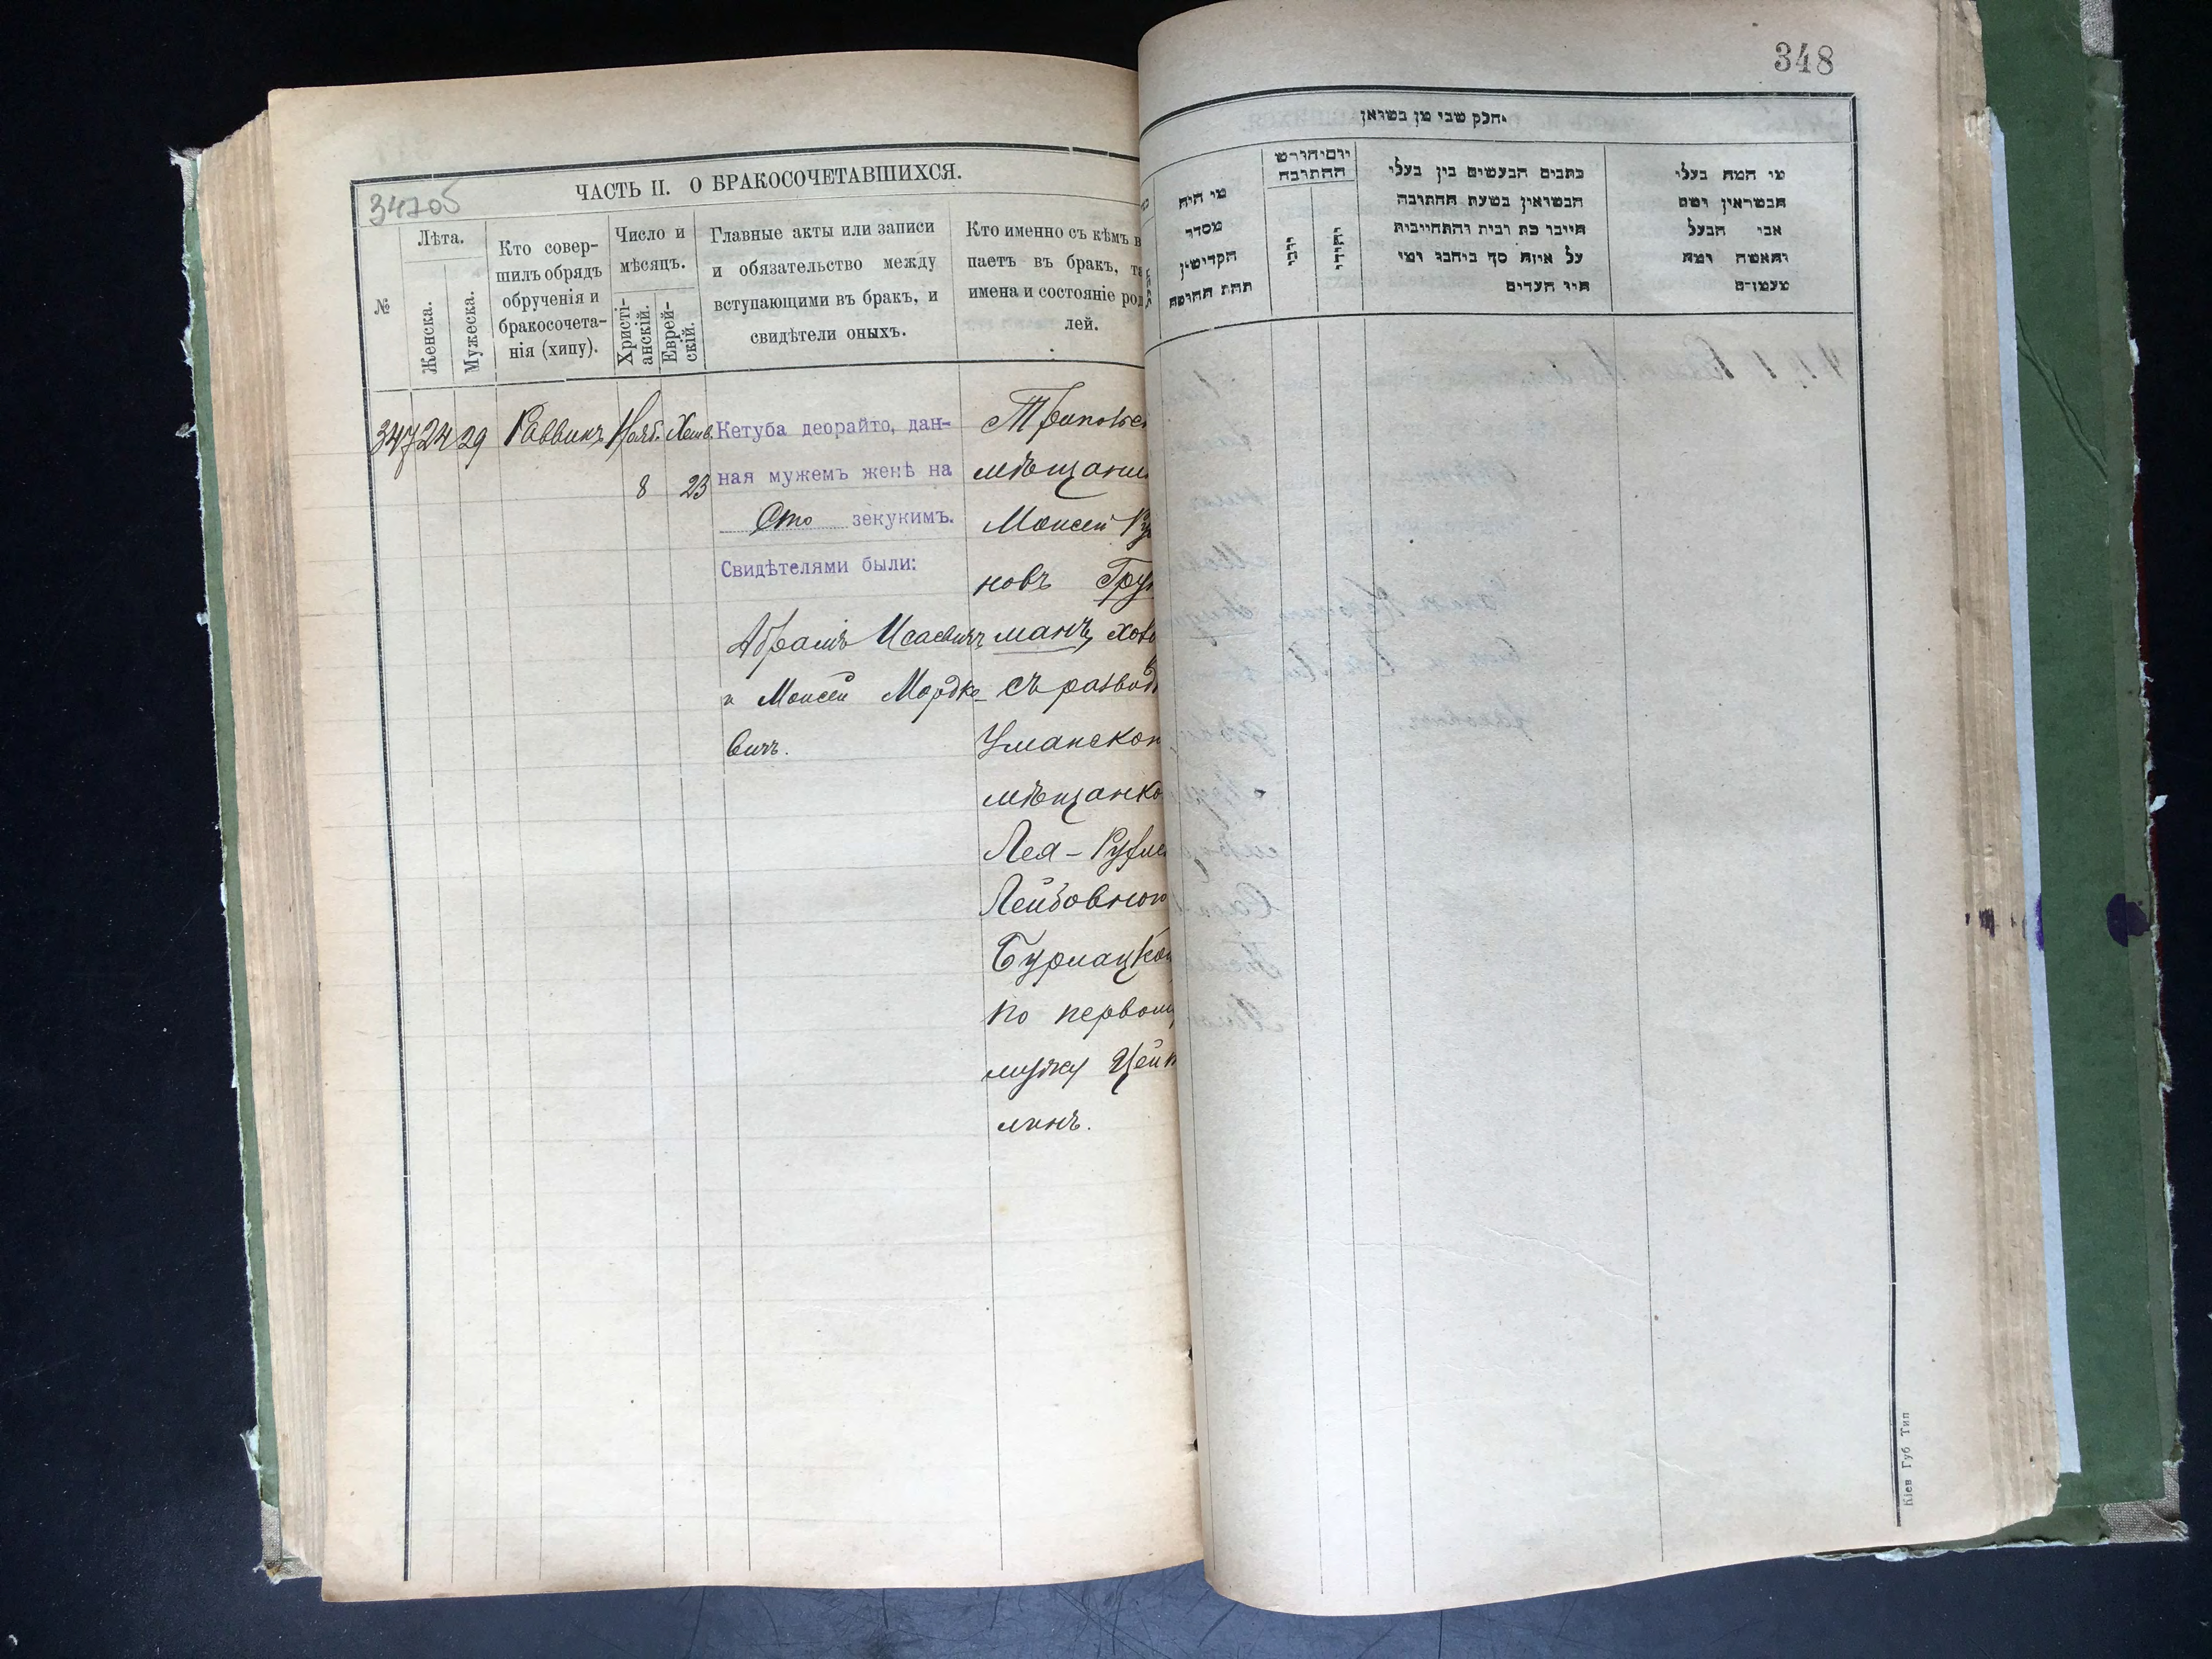 348
347об
ЧАСТЬ II. О БРАКОСОЧЕТАВШИХСЯ.
№
Лѣта.
Женска.
Мужеска.
Кто совер-
шилъ обрядъ
обрученія и
бракосочета-
нія (хипу).
Число и
мѣсяцъ.
Христі-
анскій.
Еврей-
скій.
Главные акты или записи
и обязательство между
вступающими въ бракъ, и
свидѣтели оныхъ.
Кто именно съ кѣмъ в
паетъ въ бракъ, та
имена и состояніе род
лей.
347 24 29 Раввинъ Нояб. Хешв.
8 23
Кетуба деорайто, дан-
ная мужемъ женѣ на
Сто зекукимъ.
Свидѣтелями были:
Абрамъ Исаевичъ
и Моисей Мордко-
вичъ.
мѣщани
Моисей
новъ Грун
манъ, хол
съ развод
Уманской
мѣщанко
Лея-
Лейбовною
Бурлацкой
по первом
мужу Цейт
линъ.
חלק שני מן נשואין
מי היה
מסדר
הקדושין
תחת החופה
יום וחודש
החתונה
כתבים הנעשים בין בעלי
הנשואין בשעת החתונה
על איזה סך ניתנו ומי
היו העדים
מי המה בעלי
הנשואין ושם
אבי הבעל
והאשה ומה
מעמדם
Кіев Губ Тип